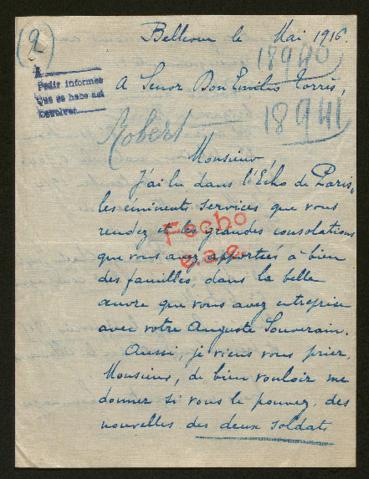 (2)
Bellevue le Mai 1916
18940
18941
Pedir informes
Que se hace así
Devolver
A Senor Don Emilio Torrès,
Robert
Monsieur
J'ai lu dans l'Écho de Paris,
les éminents services que vous
rendez et les grandes consolations
que vous avez apportées à bien
des familles, dans la belle
œuvre que vous avez entreprise
avec votre Auguste Souverain.
Fecho
e.a.e.
Aussi, je viens vous prier,
Monsieur, de bien vouloir me
donner si vous le pouvez, des
nouvelles des deux soldats